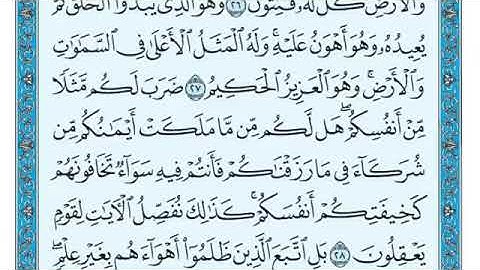 وَٱلۡأَرۡضِۖ كُلّٞ لَّهُۥ قَٰنِتُونَ ٢٦ وَهُوَ ٱلَّذِي يَبۡدَؤُاْ ٱلۡخَلۡقَ ثُمَّ
يُعِيدُهُۥ وَهُوَ أَهۡوَنُ عَلَيۡهِۚ وَلَهُ ٱلۡمَثَلُ ٱلۡأَعۡلَىٰ فِي ٱلسَّمَٰوَٰتِ
وَٱلۡأَرۡضِۚ وَهُوَ ٱلۡعَزِيزُ ٱلۡحَكِيمُ ٢٧ ضَرَبَ لَكُم مَّثَلٗا
مِّنۡ أَنفُسِكُمۡۖ هَل لَّكُم مِّن مَّا مَلَكَتۡ أَيۡمَٰنُكُم مِّن
شُرَكَآءَ فِي مَا رَزَقۡنَٰكُمۡ فَأَنتُمۡ فِيهِ سَوَآءٞ تَخَافُونَهُمۡ
كَخِيفَتِكُمۡ أَنفُسَكُمۡۚ كَذَٰلِكَ نُفَصِّلُ ٱلۡأٓيَٰتِ لِقَوۡمٖ
يَعۡقِلُونَ ٢٨ بَلِ ٱتَّبَعَ ٱلَّذِينَ ظَلَمُوٓاْ أَهۡوَآءَهُم بِغَيۡرِ عِلۡمٖۖ